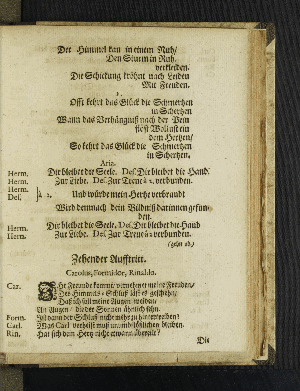 Der Himmel kan in einem Nuh/
Den Sturm in Ruh.
verkleiden.
Die Schickung kröhnt nach Leiden
Mit Freuden.
2.
Offt kehrt das Glück die Schmertzen
in Schertzen
Wann das Verhängnuß nach der Pein
ist ein
dem Hertzen/
So kehrt das Glück die Schmertzen
in Schertzen.
Aria.
Herm. Dir bleibet die Seele. Des. Dir bleibet die Hand.
Herm. Zur Liebe. Des. Zur Treue à 2. verbunden.
Herm.
Des. à 2. Und würde mein Hertze verbrandt
Wird dennoch dein Bildnüß darinnen gefun-
den.
Herm. Dir bleibet die Seele. Des. Dir bleibet die Hand
Herm. Zur Liebe. Des. Zur Treue à 2. verbunden.
(gehn ab)
Zehender Aufftritt.
Carolus, Rinaldo.
Car. Ihr Freunde kommt/ vernehmet meine Freuden/
Des Himmels Schluß läst es geschehn/
Daß ich soll meine Augen weiden/
An Augen/ die der Sonnen ähnlich sehn.
Form. Ist dann der Schluß nicht mehr zu hintertreiben?
Carl. Was Carl verheißt muß unumbstößlichen bleiben.
Rin. Hat sich dein Hertz nicht
Die